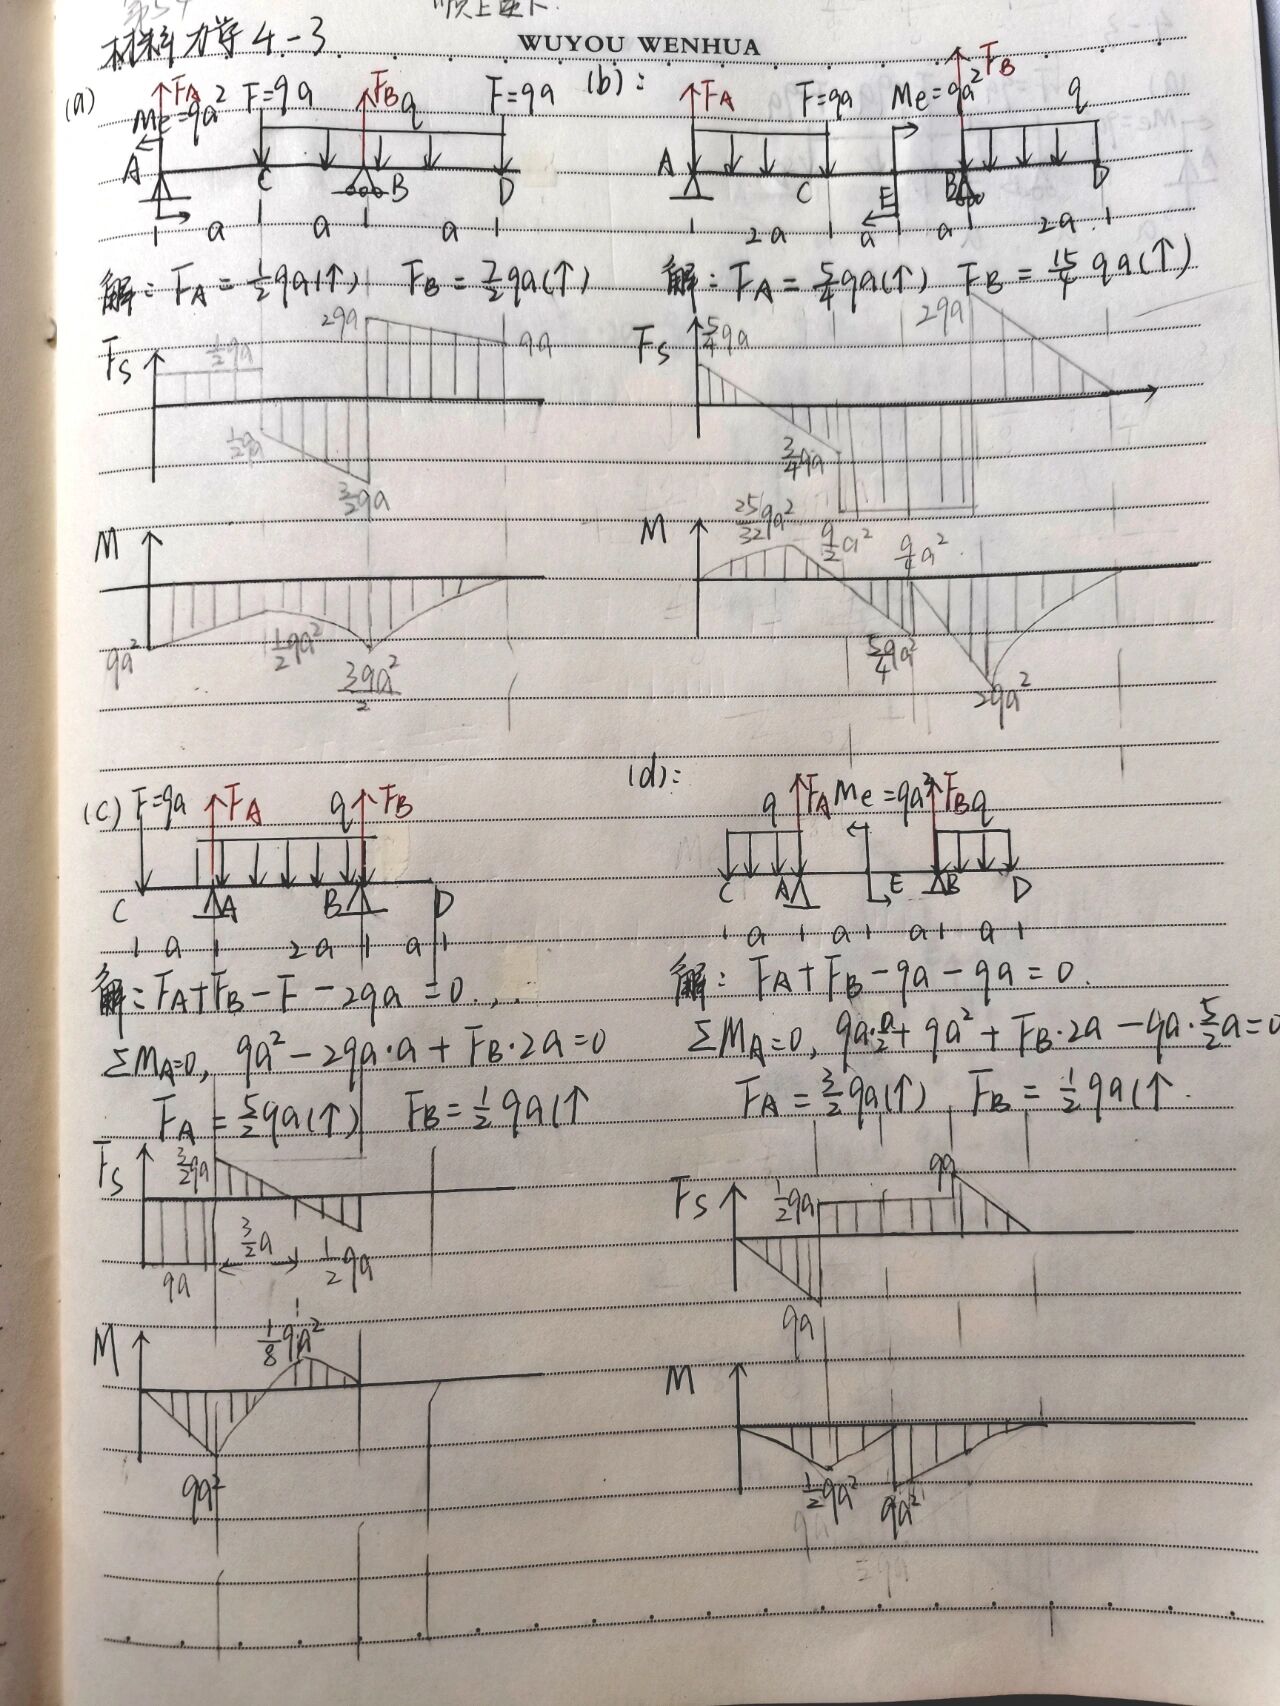 顺上逆下
材料力学 4-3
WUYOU WENHUA
(a) FA Me=qa² F=qa FB q F=qa
A C B D
a a a
解: FA = 1/2 qa(↑) FB = 7/2 qa(↑)
Fs 1/2 qa 2qa qa
1/2 qa 3/2 qa
M
qa² 1/2 qa² 3qa²/2
(b): FA F=qa Me=qa² FB q
A C E B D
2a a a 2a
解: FA = 5/4 qa(↑) FB = 15/4 qa(↑)
Fs 5/4 qa 2qa
3/4 qa
M 25/32 qa² q/2 a² q/4 a²
5/4 qa² 2qa²
(c) F=qa FA q FB
C A B D
a 2a a
解: FA+FB-F-2qa=0
ΣMA=0, qa²-2qa·a+FB·2a=0
FA = 5/2 qa(↑) FB = 1/2 qa(↑
Fs 3/2 qa
3/2 a 1/2 qa
qa
M 1/8 qa²
qa²
(d): q FA Me=qa² FB q
C A E B D
a a a a
解: FA+FB-qa-qa=0.
ΣMA=0, qa·a/2+qa²+FB·2a-qa·5/2a=0
FA = 3/2 qa(↑) FB = 1/2 qa(↑.
Fs 1/2 qa qa
qa
M
1/2 qa² qa²